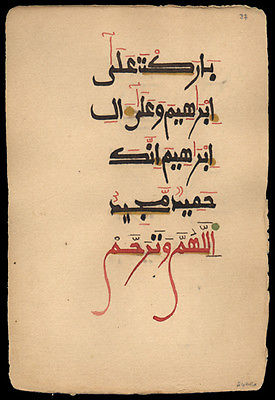 باركت على
ابراهيم وعلى ال
ابراهيم انك
حميد مجيد
اللهم وترحم